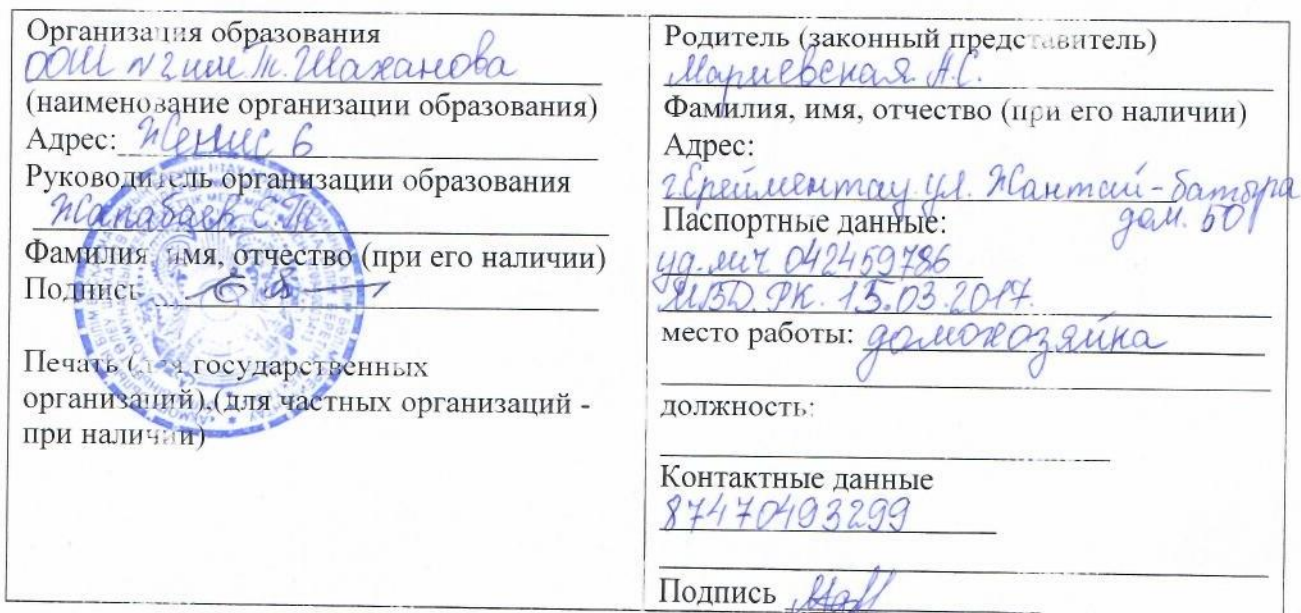 Организация образования
ООШ №2 им Т. Шаханова
(наименование организации образования)
Адрес: Женис 6
Руководитель организации образования
Жапабаев Е.Т.
Фамилия, имя, отчество (при его наличии)
Подпись
Печать (для государственных
организаций),(для частных организаций -
при наличии)
Родитель (законный представитель)
Мариевская А.С.
Фамилия, имя, отчество (при его наличии)
Адрес:
г.Ерейментау ул. Жантай-батыра
дом. 50
Паспортные данные:
уд. лич 042459786
МВД. РК. 15.03.2017.
место работы: домохозяйка
должность:
Контактные данные
87470493299
Подпись